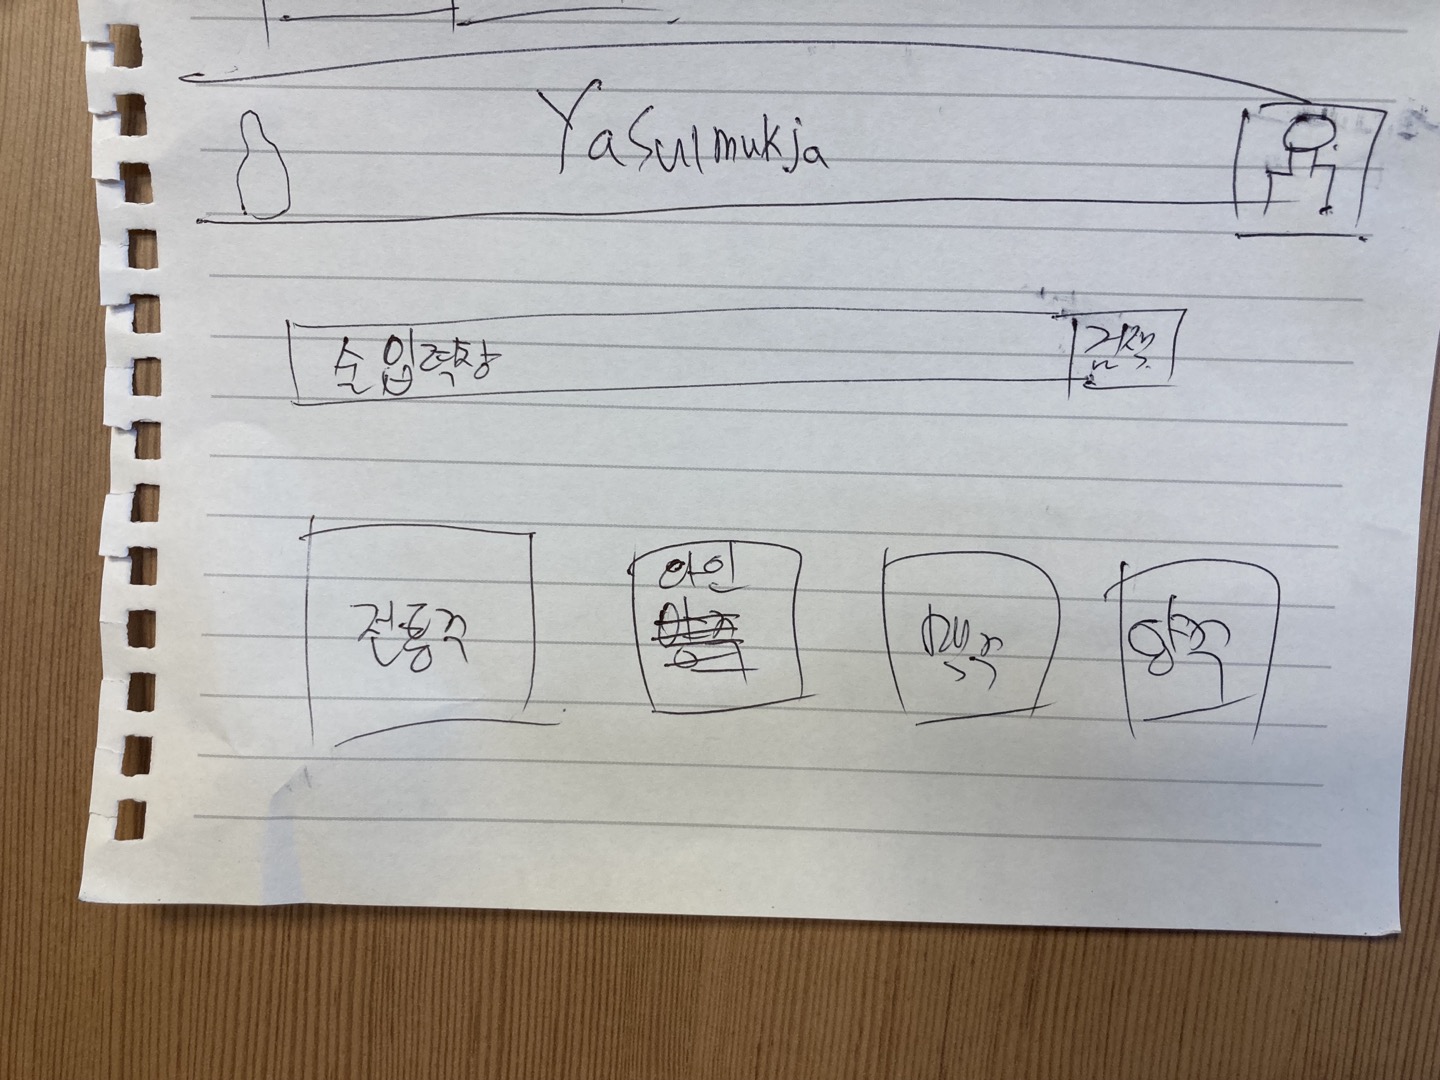 Yasulmukja
술 입력창 검색
전통주 와인 맥주 양주